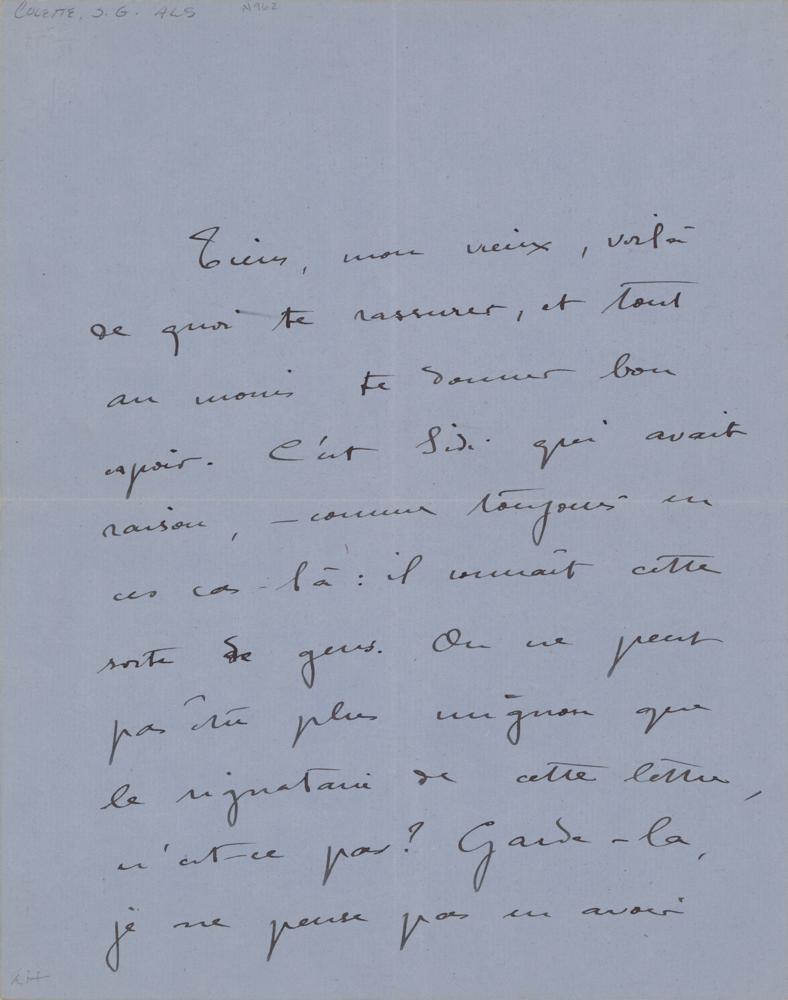 COLETTE, S. G. ALS N962
Tiens, mon vieux, voilà
de quoi te rassurer, et tout
au moins te donner bon
espoir. C'est Sidi qui avait
raison, — comme toujours en
ces cas-là : il connaît cette
sorte de gens. On ne peut
pas être plus mignon que
le signataire de cette lettre,
n'est-ce pas? Garde-la,
je ne pense pas en avoir